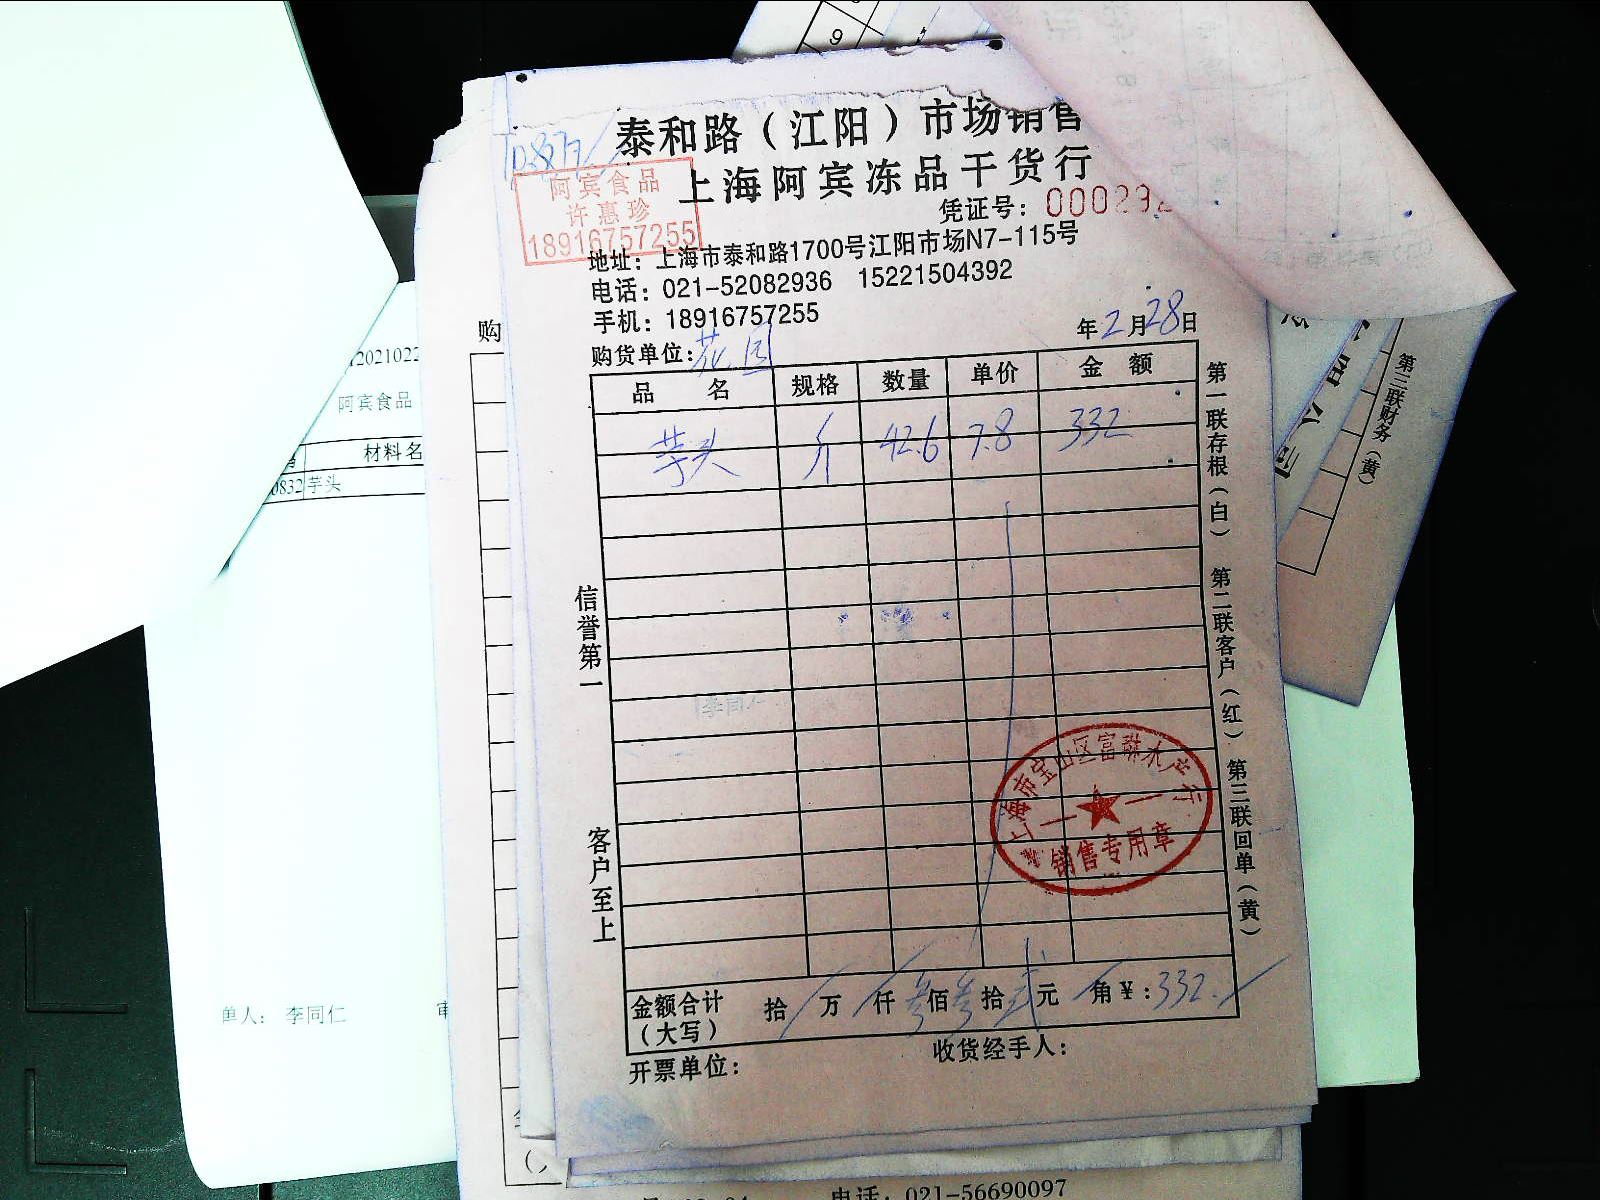 9
泰和路（江阳）市场销售
上海阿宾冻品干货行
阿宾食品
许惠珍
18916757255
凭证号：000292
地址：上海市泰和路1700号江阳市场N7-115号
电话：021-52082936 15221504392
手机：18916757255
年2月28日
购货单位：花园
品名 规格 数量 单价 金额
芋头 斤 42.6 7.8 332
信誉第一
客户至上
第一联存根（白） 第二联客户（红） 第三联回单（黄）
上海市宝山区富琳水产行
销售专用章
金额合计（大写） 拾 万 仟 叁佰叁拾贰元 角 ¥：332.
开票单位：
收货经手人：
购
12021022
阿宾食品
材料名
0832 芋头
单人：李同仁
审
第三联财务（黄）
电话：021-56690097